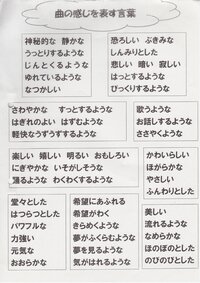 曲の感じを表す言葉
神秘的な 静かな
うっとりするような
じんとくるような
ゆれているような
なつかしい
恐ろしい ぶきみな
しんみりとした
悲しい 暗い 寂しい
はっとするような
びっくりするような
さわやかな すっとするような
はぎれのよい はずむような
軽快なうずうずするような
歌うような
お話するような
ささやくような
楽しい 嬉しい 明るい おもしろい
にぎやかな いそがしそうな
踊るような わくわくするような
かわいらしい
ほがらかな
やさしい
ふんわりとした
堂々とした
はつらつとした
パワフルな
力強い
元気な
おおらかな
希望にあふれる
希望がわく
きらめくような
夢がふくらむような
夢を見るような
気がはれるような
美しい
流れるような
なめらかな
ほのぼのとした
のびのびとした